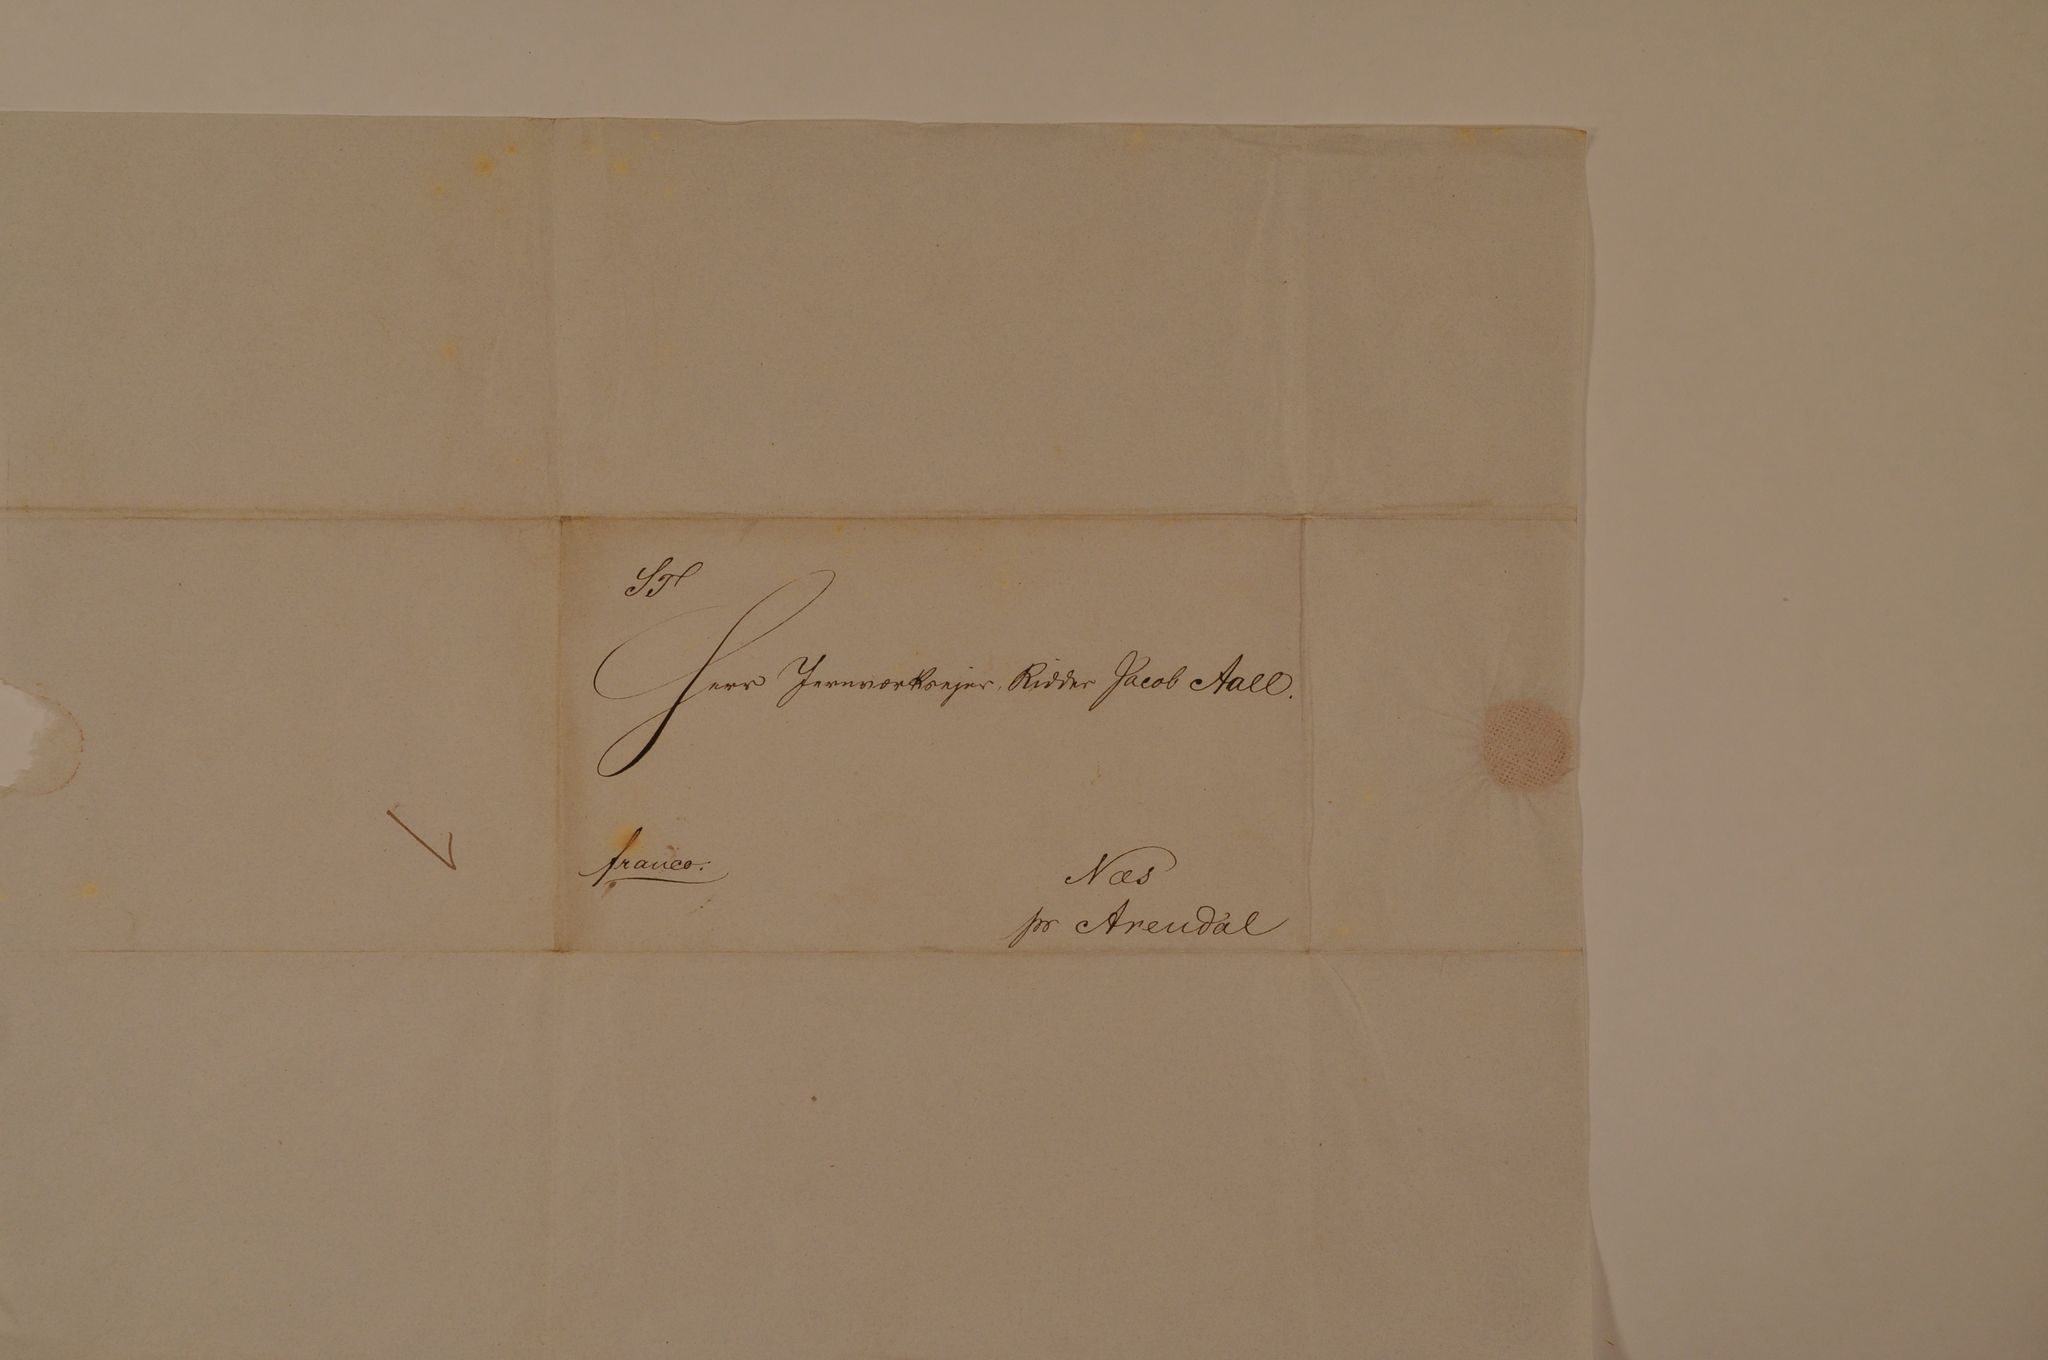 ST
Herr Jernværksejer, Ridder Jacob Aall.
franco.
Næs
pr Arendal